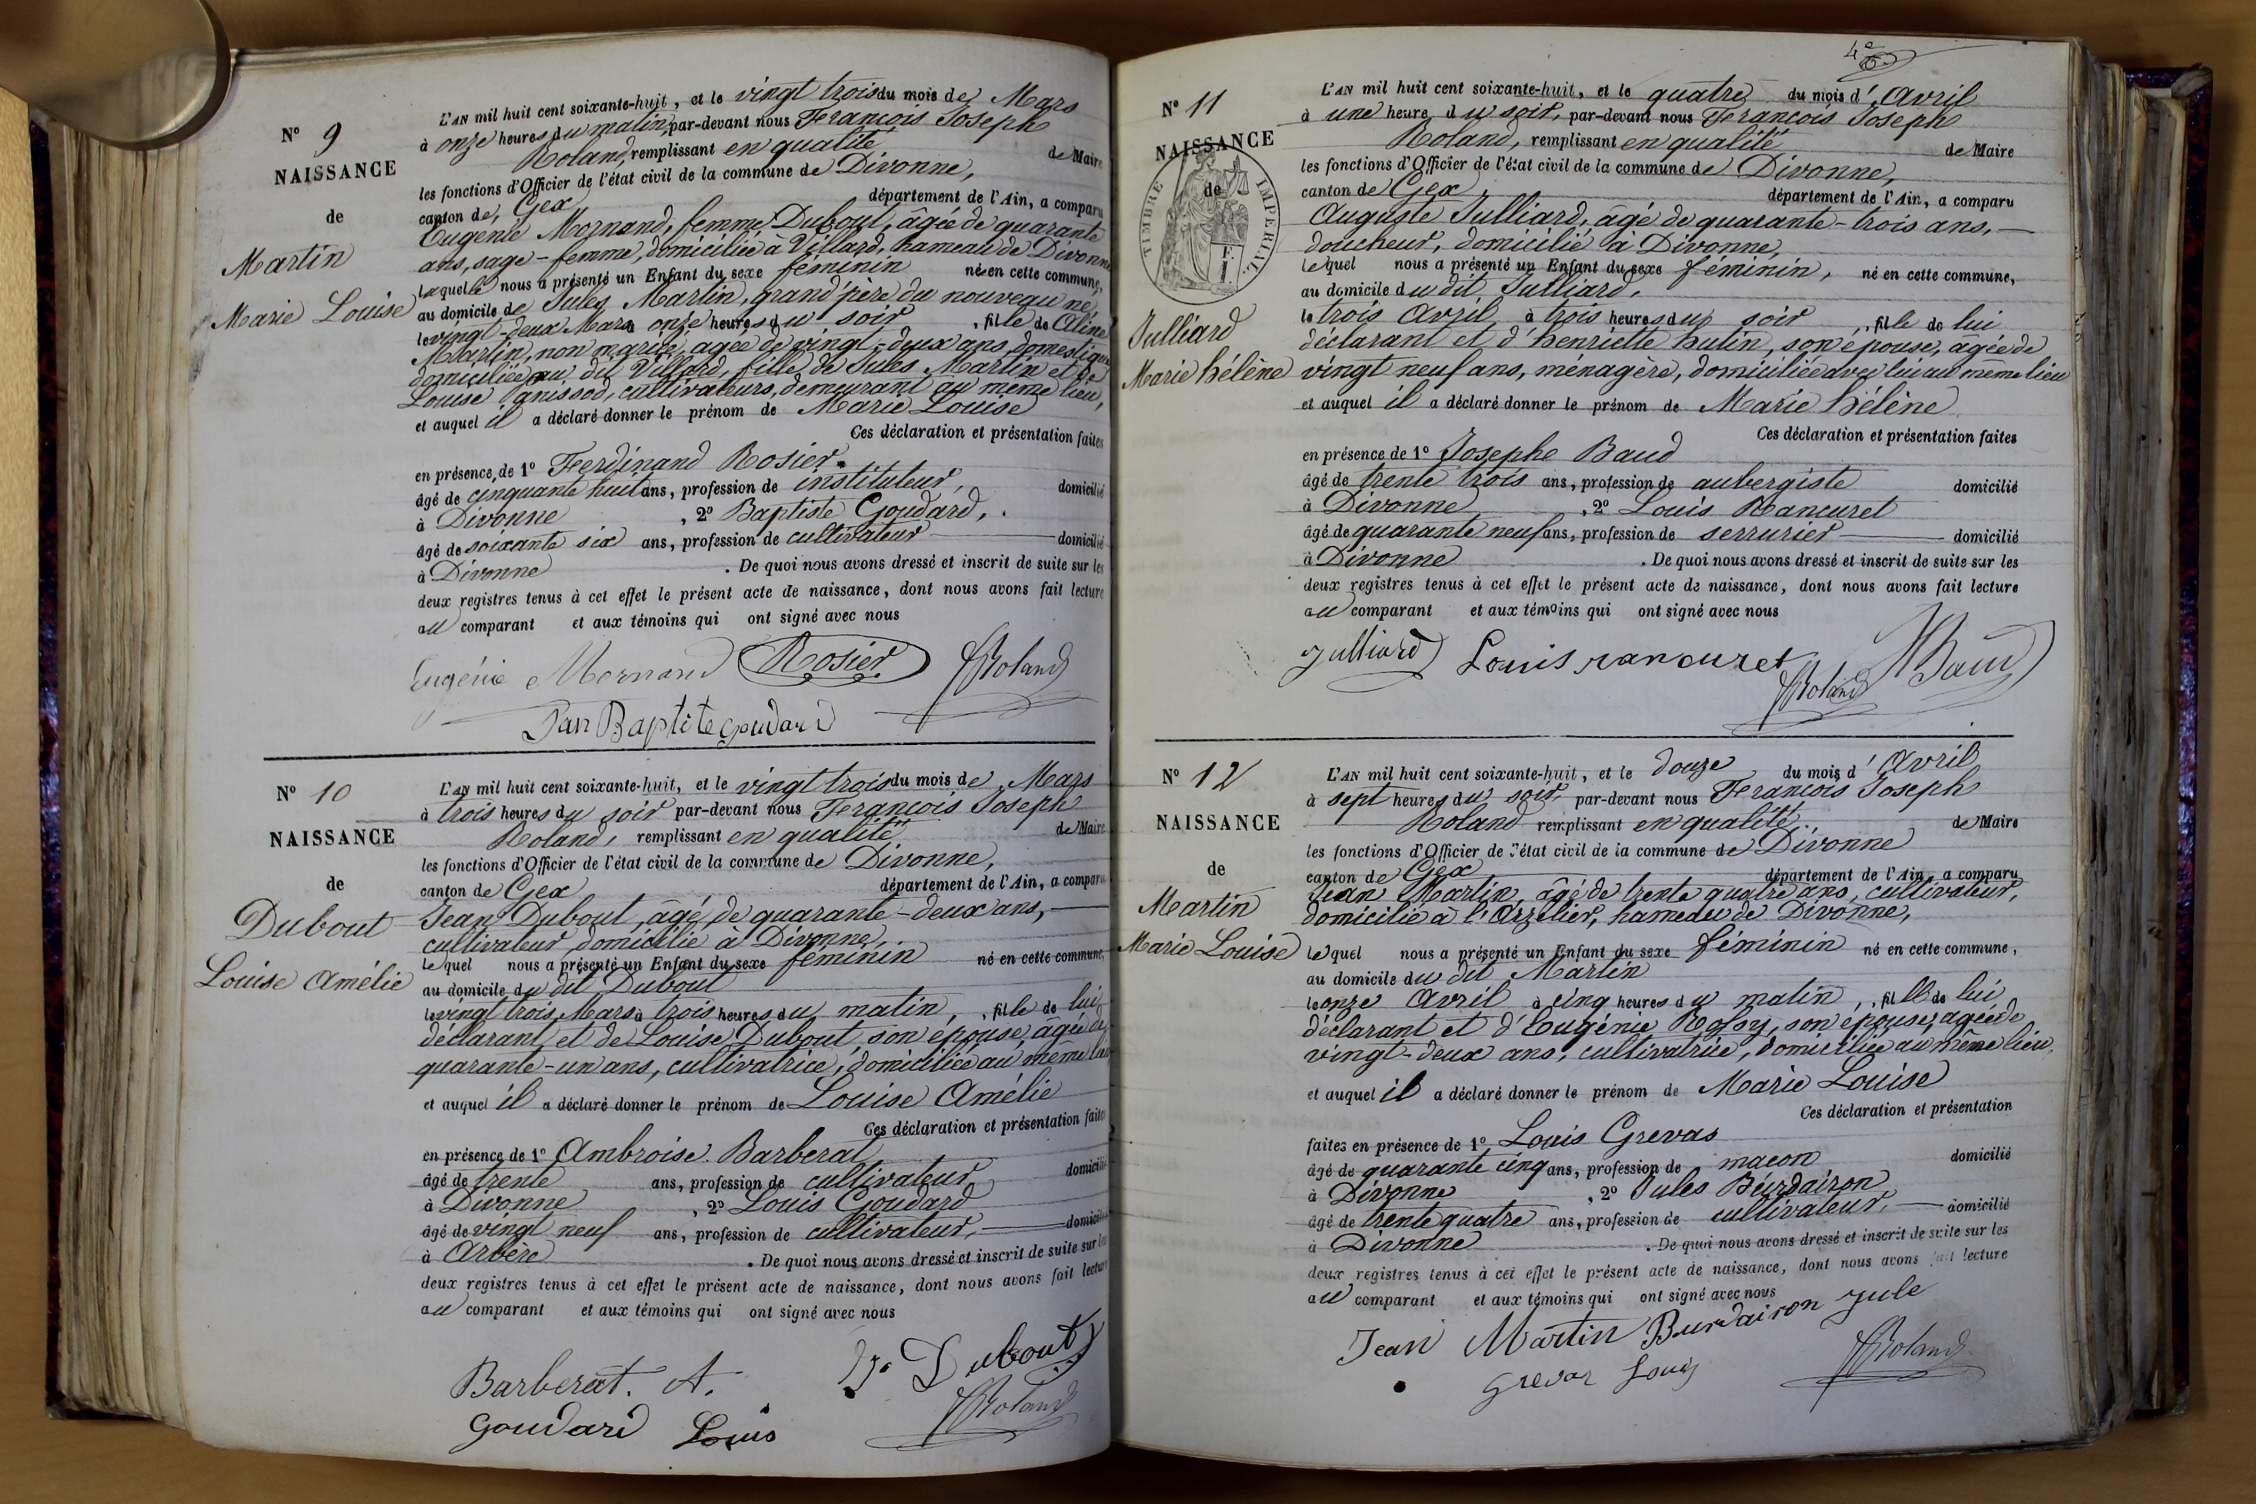 N° 9
NAISSANCE
de
Martin
Marie Louise
L'AN mil huit cent soixante-huit, et le vingt trois du mois de Mars
à onze heures du matin, par-devant nous François Joseph
Roland, remplissant en qualité de Maire
les fonctions d'Officier de l'état civil de la commune de Divonne,
canton de, Gex département de l'Ain, a comparu
Eugénie Mornand, femme Dubout, âgée de quarante
ans, sage-femme, domiciliée à Villard, hameau de Divonne
laquelle nous a présenté un Enfant du sexe féminin né en cette commune,
au domicile de Jules Martin, grand'père du nouveau né,
le vingt-deux Mars à onze heures du soir, fille de Aline
Martin, non mariée, agée de vingt-deux ans, domestique
domiciliée au dit Villard, fille de Jules Martin et de
Louise Panissod, cultivateurs, demeurant au même lieu,
et auquel il a déclaré donner le prénom de Marie Louise
Ces déclaration et présentation faites
en présence de 1° Ferdinand Rosier
âgé de cinquante huit ans, profession de instituteur, domicilié
à Divonne, 2° Baptiste Goudard,
âgé de soixante six ans, profession de cultivateur domicilié
à Divonne. De quoi nous avons dressé et inscrit de suite sur les
deux registres tenus à cet effet le présent acte de naissance, dont nous avons fait lecture
au comparant et aux témoins qui ont signé avec nous
Eugénie Mornand Rosier Roland
Jan Baptite goudard
N° 10
NAISSANCE
de
Dubout
Louise Amélie
L'AN mil huit cent soixante-huit, et le vingt trois du mois de Mars
à trois heures du soir par-devant nous François Joseph
Roland, remplissant en qualité de Maire
les fonctions d'Officier de l'état civil de la commune de Divonne,
canton de Gex département de l'Ain, a comparu
Jean Dubout, âgé de quarante-deux ans,
cultivateur, domicilié à Divonne,
lequel nous a présenté un Enfant du sexe féminin né en cette commune,
au domicile du dit Dubout
le vingt trois Mars à trois heures du matin, fille de lui
déclarant et de Louise Dubout, son épouse, âgée de
quarante-un ans, cultivatrice, domiciliée au même lieu
et auquel il a déclaré donner le prénom de Louise Amélie
Ces déclaration et présentation faites
en présence de 1° Ambroise Barberat
âgé de trente ans, profession de cultivateur domicilié
à Divonne, 2° Louis Goudard
âgé de vingt neuf ans, profession de cultivateur, domicilié
à Arbère. De quoi nous avons dressé et inscrit de suite sur les
deux registres tenus à cet effet le présent acte de naissance, dont nous avons fait lecture
au comparant et aux témoins qui ont signé avec nous
Barberat. A. Dubout
Goudard Louis Roland
4e
N° 11
NAISSANCE
de
TIMBRE IMPÉRIAL
Julliard
Marie hélène
L'AN mil huit cent soixante-huit, et le quatre du mois d'Avril
à une heure du soir, par-devant nous François Joseph
Roland, remplissant en qualité de Maire
les fonctions d'Officier de l'état civil de la commune de Divonne,
canton de Gex, département de l'Ain, a comparu
Auguste Julliard, âgé de quarante-trois ans,
doucheur, domicilié à Divonne,
lequel nous a présenté un Enfant du sexe féminin, né en cette commune,
au domicile du dit Julliard,
le trois Avril à trois heures du soir, fille de lui
déclarant et d'henriette hutin, son épouse, agée de
vingt neuf ans, ménagère, domiciliée avec lui au même lieu
et auquel il a déclaré donner le prénom de Marie hélène
Ces déclaration et présentation faites
en présence de 1° Josephe Baud
âgé de trente trois ans, profession de aubergiste domicilié
à Divonne, 2° Louis Rancuret
âgé de quarante neuf ans, profession de serrurier domicilié
à Divonne. De quoi nous avons dressé et inscrit de suite sur les
deux registres tenus à cet effet le présent acte de naissance, dont nous avons fait lecture
au comparant et aux témoins qui ont signé avec nous
Julliard Louis rancuret Roland Baud
N° 12
NAISSANCE
de
Martin
Marie Louise
L'AN mil huit cent soixante-huit, et le douze du mois d'Avril
à sept heures du soir, par-devant nous François Joseph
Roland remplissant en qualité de Maire
les fonctions d'Officier de l'état civil de la commune de Divonne
canton de Gex département de l'Ain, a comparu
Jean Martin, âgé de trente quatre ans, cultivateur,
domicilié à l'Orzelier, hameau de Divonne,
lequel nous a présenté un Enfant du sexe féminin né en cette commune,
au domicile du dit Martin
le onze Avril à cinq heures du matin, fille de lui
déclarant et d'Eugénie Rofoy, son épouse, agée de
vingt-deux ans, cultivatrice, domiciliée au même lieu,
et auquel il a déclaré donner le prénom de Marie Louise
Ces déclaration et présentation
faites en présence de 1° Louis Grevas
âgé de quarante cinq ans, profession de maçon domicilié
à Divonne, 2° Jules Burdairon
âgé de trente quatre ans, profession de cultivateur, domicilié
à Divonne. De quoi nous avons dressé et inscrit de suite sur les
deux registres tenus à cet effet le présent acte de naissance, dont nous avons fait lecture
au comparant et aux témoins qui ont signé avec nous
Jean Martin Burdairon jule
Grevas Louis Roland